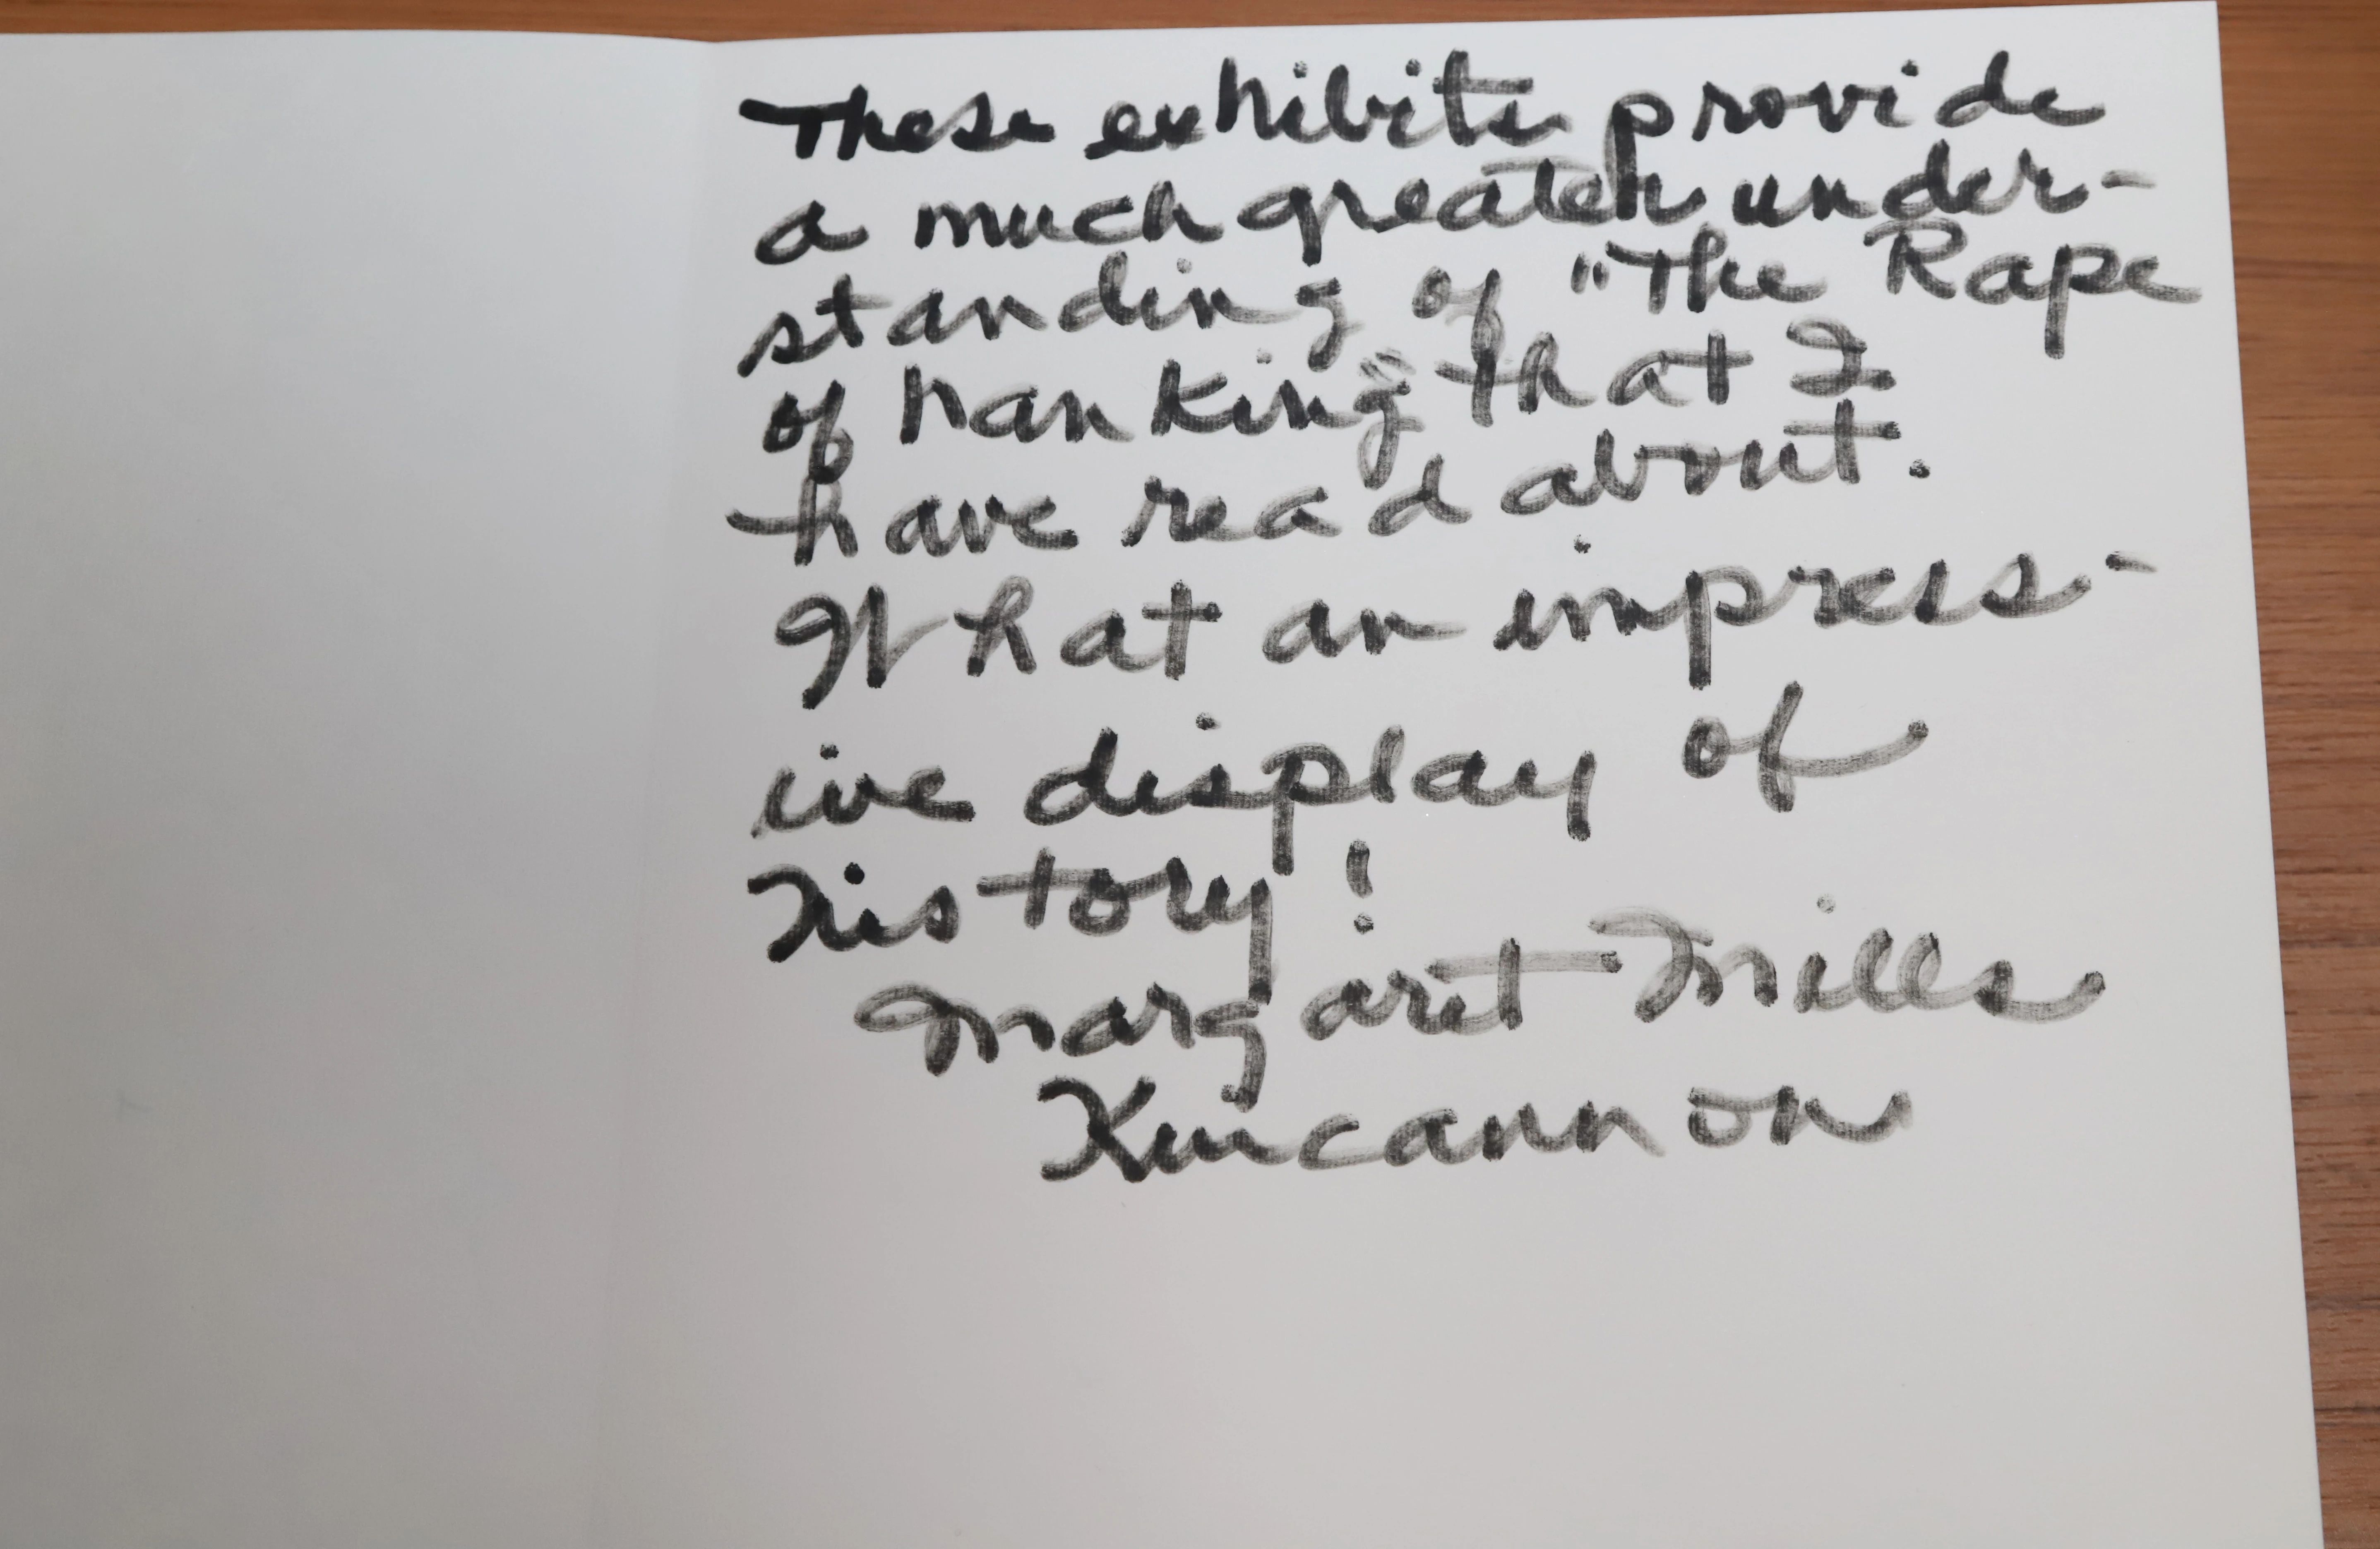 These exhibits provide
a much greater under-
standing of "The Rape
of Nanking" that I
have read about.
What an impress-
ive display of
history!
Margaret Mills
Kincannon